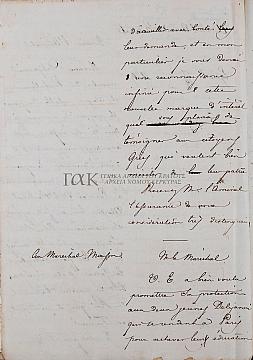 d'accueillir avec bonté
leur demande, et en mon
particulier je vous devrai
une reconnaissance
infinie pour cette
nouvelle marque d'intérêt
qu'il vous plaira de
témoigner aux citoyens
Grecs que veulent bien
leur patrie
Recevez Mr. l'Amiral
l'assurance de ma
considération très distinguée
ΓΑΚ ΓΕΝΙΚΑ ΑΡΧΕΙΑ ΤΟΥ ΚΡΑΤΟΥΣ
ΑΡΧΕΙΑ ΝΟΜΟΥ ΚΕΡΚΥΡΑΣ
Au Maréchal Maison
Mr le Maréchal
V. E. a bien voulu
promettre sa protection
aux deux jeunes Deliyanni
qui se rendent à Paris
pour achever leur éducation